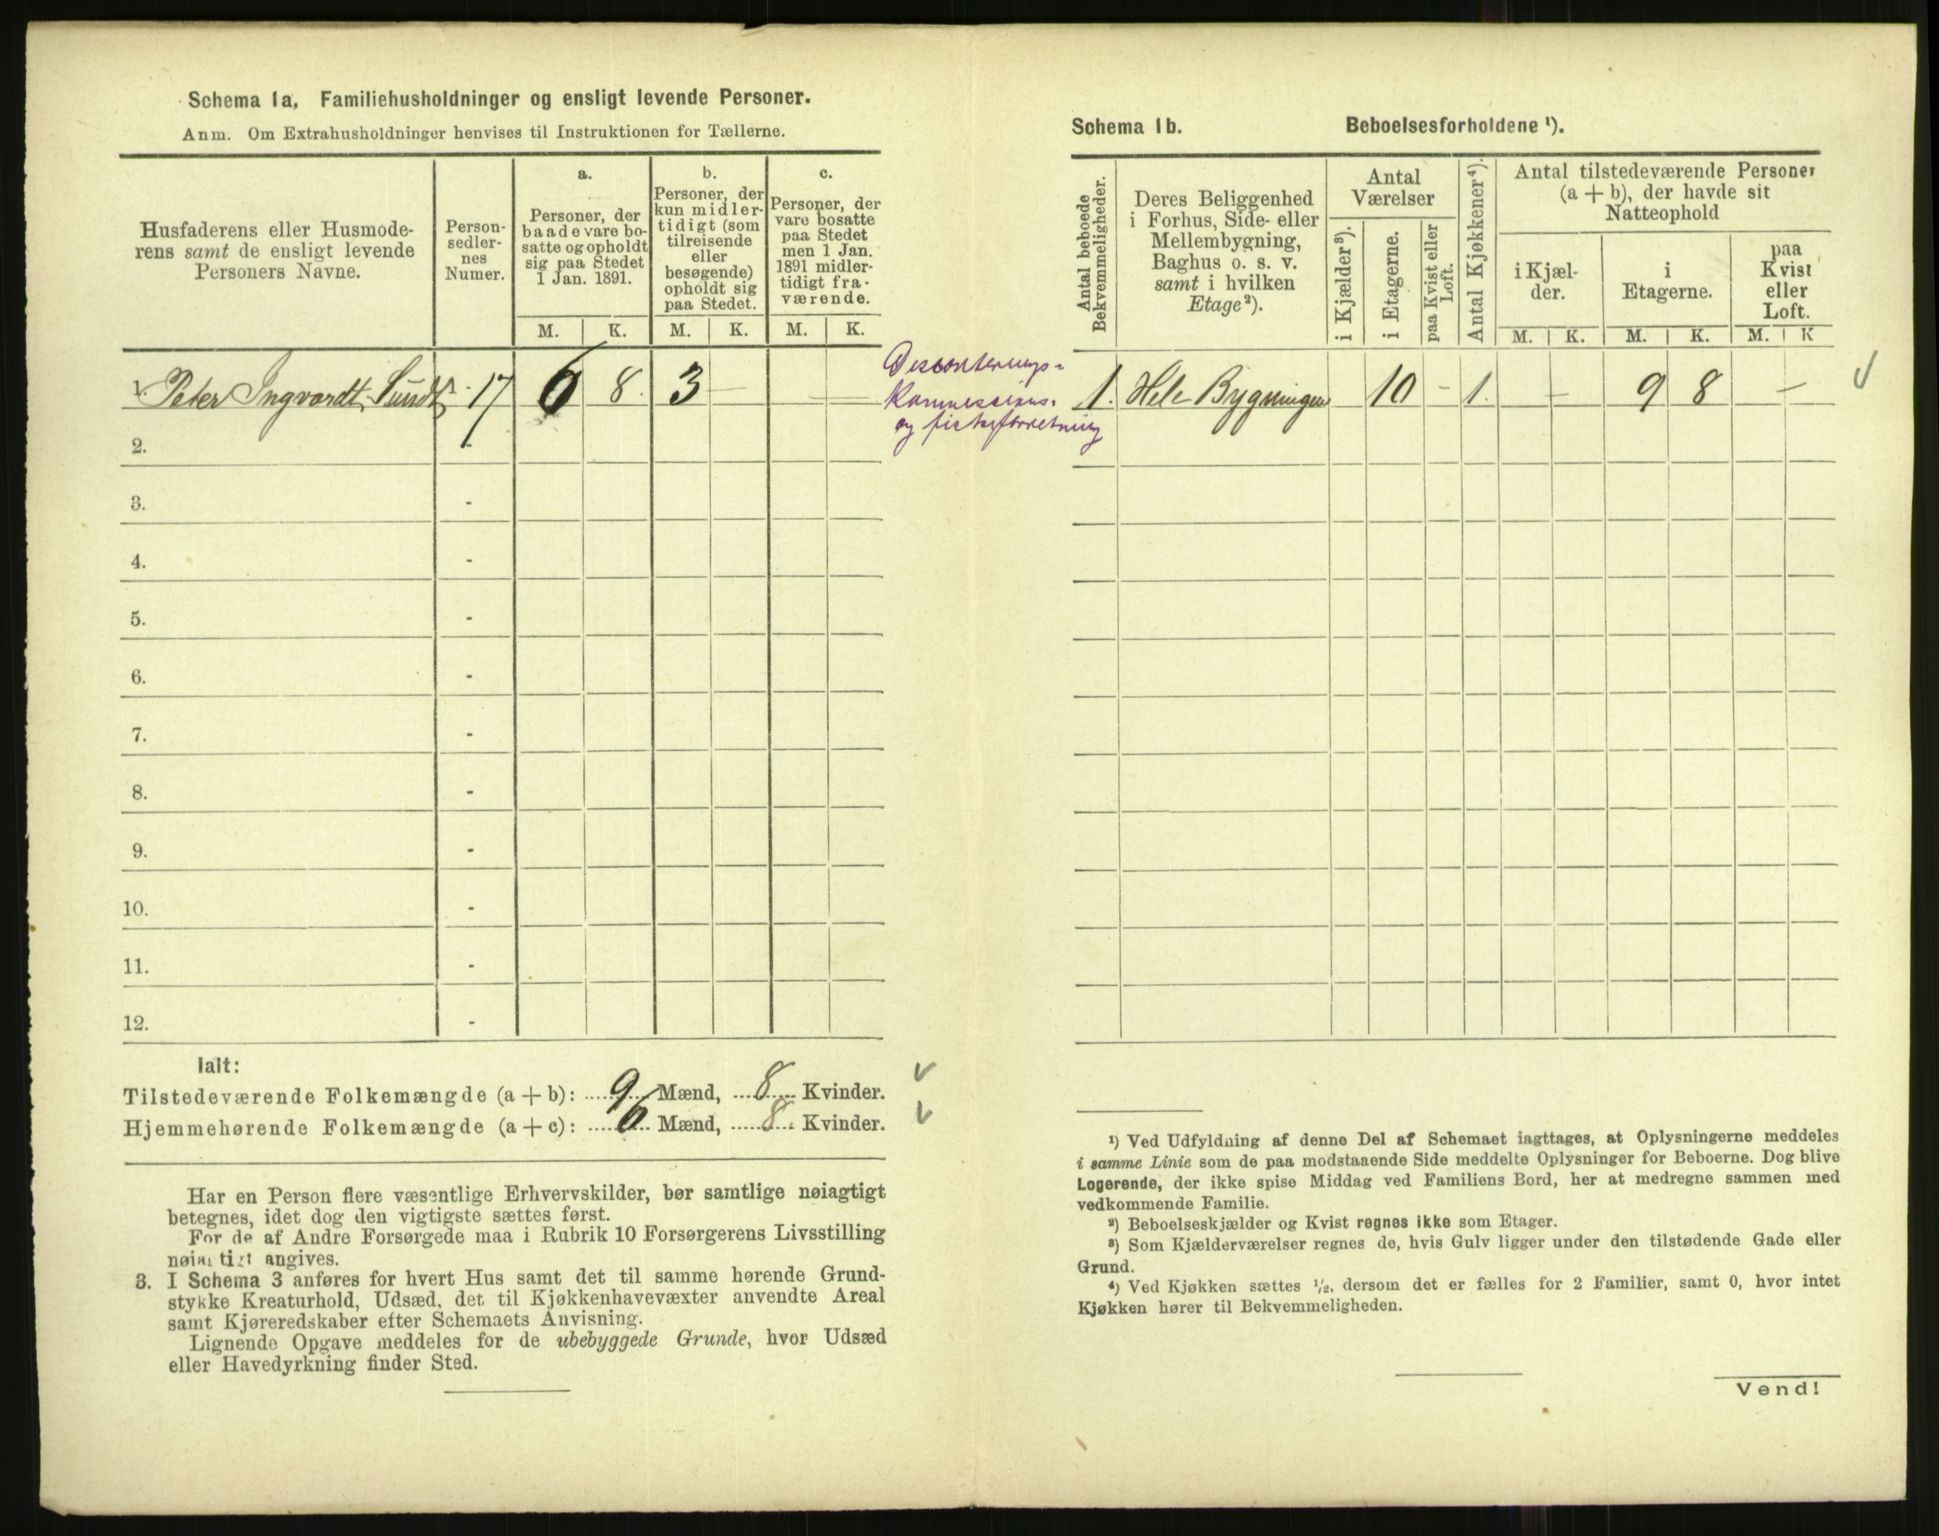 Schema 1a, Familiehusholdninger og ensligt levende Personer.
Anm. Om Extrahusholdninger henvises til Instruktionen for Tællerne.
Husfaderens eller Husmode-
rens samt de ensligt levende
Personers Navne.
Person-
sedler-
nes
Numer.
a.
Personer, der
baade vare bo-
satte og opholdt
sig paa Stedet
1 Jan. 1891.
b.
Personer, der
kun midler-
tidigt (som
tilreisende
eller
besøgende)
opholdt sig
paa Stedet.
c.
Personer, der
vare bosatte
paa Stedet
men 1 Jan.
1891 midler-
tidigt fra-
værende.
M. K. M. K. M. K.
1. Peter Ingvardt Sundt 1 - 17 6 8. 3 — —
2. -
3. -
4. -
5. -
6. -
7. -
8. -
9. -
10. -
11. -
12. -
Ialt:
Tilstedeværende Folkemængde (a + b): 9 Mænd, 8 Kvinder.
Hjemmehørende Folkemængde (a + c): 6 Mænd, 8 Kvinder.
Har en Person flere væsentlige Erhvervskilder, bør samtlige nøiagtigt
betegnes, idet dog den vigtigste sættes først.
For de af Andre Forsørgede maa i Rubrik 10 Forsørgerens Livsstilling
nøiagtigt angives.
3. I Schema 3 anføres for hvert Hus samt det til samme hørende Grund-
stykke Kreaturhold, Udsæd, det til Kjøkkenhavevæxter anvendte Areal
samt Kjøreredskaber efter Schemaets Anvisning.
Lignende Opgave meddeles for de ubebyggede Grunde, hvor Udsæd
eller Havedyrkning finder Sted.
Disconterings-
Kommissions-
og fiskeforretning
Schema 1b. Beboelsesforholdene ¹).
Antal beboede
Bekvemmeligheder.
Deres Beliggenhed
i Forhus, Side- eller
Mellembygning,
Baghus o. s. v.
samt i hvilken
Etage²).
Antal
Værelser
i Kjælder³).
i Etagerne.
paa Kvist eller
Loft.
Antal Kjøkkener⁴).
Antal tilstedeværende Personer
(a + b), der havde sit
Natteophold
i Kjæl-
der.
i
Etagerne.
paa
Kvist
eller
Loft.
M. K. M. K. M. K
1. Hele Bygningen 10 - 1. — 9 8 —
¹) Ved Udfyldning af denne Del af Schemaet iagttages, at Oplysningerne meddeles
i samme Linie som de paa modstaaende Side meddelte Oplysninger for Beboerne. Dog blive
Logerende, der ikke spise Middag ved Familiens Bord, her at medregne sammen med
vedkommende Familie.
²) Beboelseskjælder og Kvist regnes ikke som Etager.
³) Som Kjælderværelser regnes de, hvis Gulv ligger under den tilstødende Gade eller
Grund.
⁴) Ved Kjøkken sættes ½, dersom det er fælles for 2 Familier, samt 0, hvor intet
Kjøkken hører til Bekvemmeligheden.
Vend!